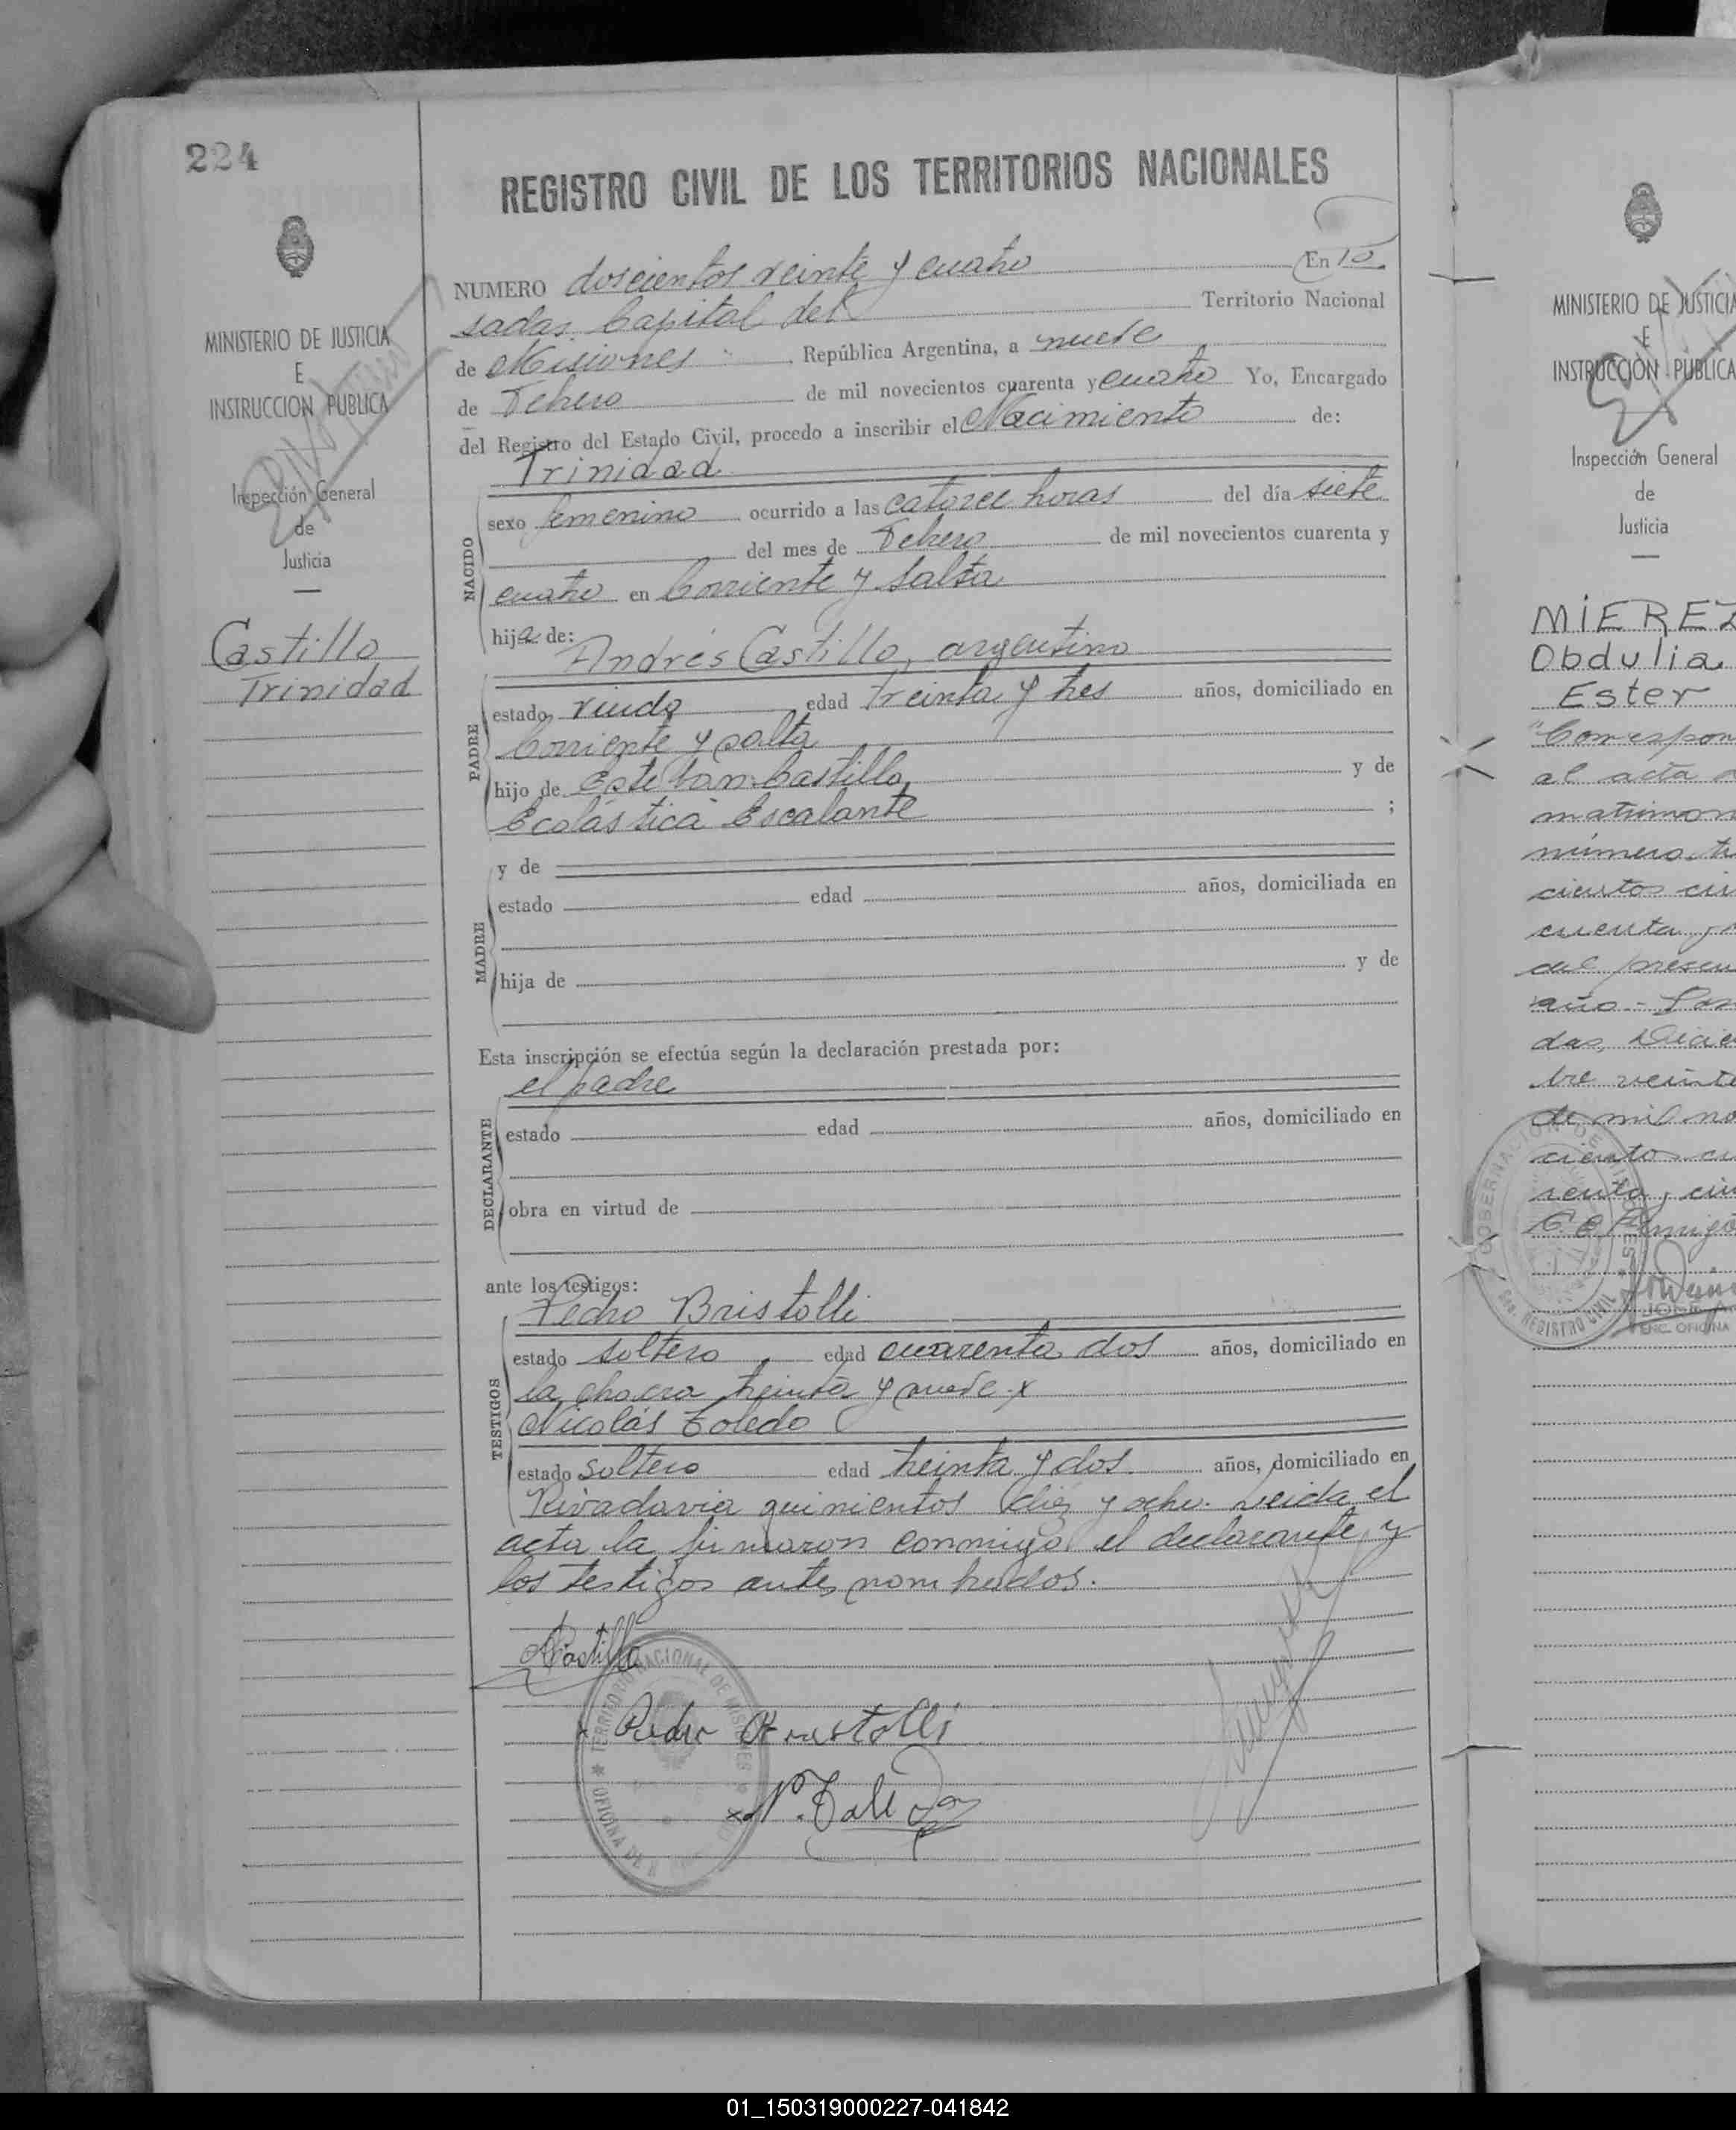 224
REGISTRO CIVIL DE LOS TERRITORIOS NACIONALES
MINISTERIO DE JUSTICIA
E
INSTRUCCION PUBLICA
Inspección General
de
Justicia
Castillo
Trinidad
NUMERO doscientos veinte y cuatro En Po
sadas Capital del Territorio Nacional
de Misiones República Argentina, a nueve
de Febrero de mil novecientos cuarenta y cuatro Yo, Encargado
del Registro del Estado Civil, procedo a inscribir el Nacimiento de:
Trinidad
NACIDO
sexo femenino ocurrido a las catorce horas del día siete
del mes de Febrero de mil novecientos cuarenta y
cuatro en Corriente y Salta
hija de:
Andrés Castillo, argentino
PADRE
estado viudo edad treinta y tres años, domiciliado en
Corriente y salta
hijo de Esteban Castillo y de
Ecolástica Escalante ;
y de
MADRE
estado edad años, domiciliada en
hija de y de
Esta inscripción se efectúa según la declaración prestada por:
el padre
DECLARANTE
estado edad años, domiciliado en
obra en virtud de
ante los testigos:
Pedro Bristolli
TESTIGOS
estado soltero edad cuarenta dos años, domiciliado en
la chacra treinta y nueve x
Nicolás Toledo
estado soltero edad treinta y dos años, domiciliado en
Rivadavia quinientos diez y ocho. Leida el
acta la firmaron conmigo el declarante y
los testigos antes nombrados.
ACastillo
Pedro Bristolli
N. Toledo
TERRITORIO NACIONAL DE MISIONES
OFICINA DE
MINISTERIO DE JUSTICIA
E
INSTRUCCION PUBLICA
Inspección General
de
Justicia
MIEREZ
Obdulia
Ester
"Correspon
al acta
matrimon
número tr
cientos cin
cuenta y
del presen
año.- Posa
das, Diciem
bre veinte
de mil no
ciento cu
renta y cin
GOBERNACION DE MISIONES
REGISTRO CIVIL
JOSE A.
ENC. OFICINA
01_150319000227-041842